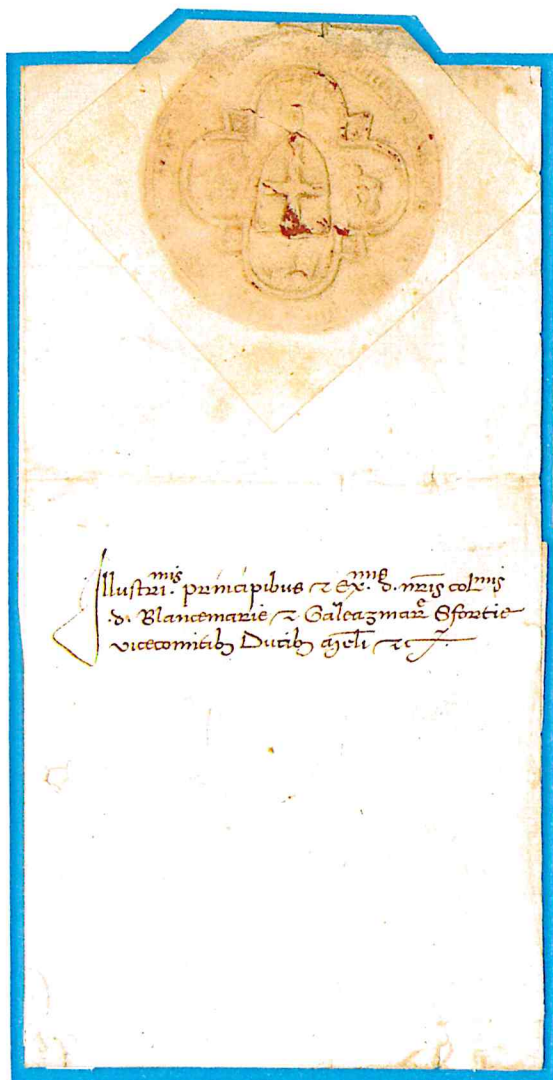 Illustri.mis principibus ⁊ Ex.mis d. nr̃is col.mis
.d. Blancemarie ⁊ Galeazmar̃e Sfortie
vicecomitib⁊ Ducib⁊ Mel̃i ⁊c̃.